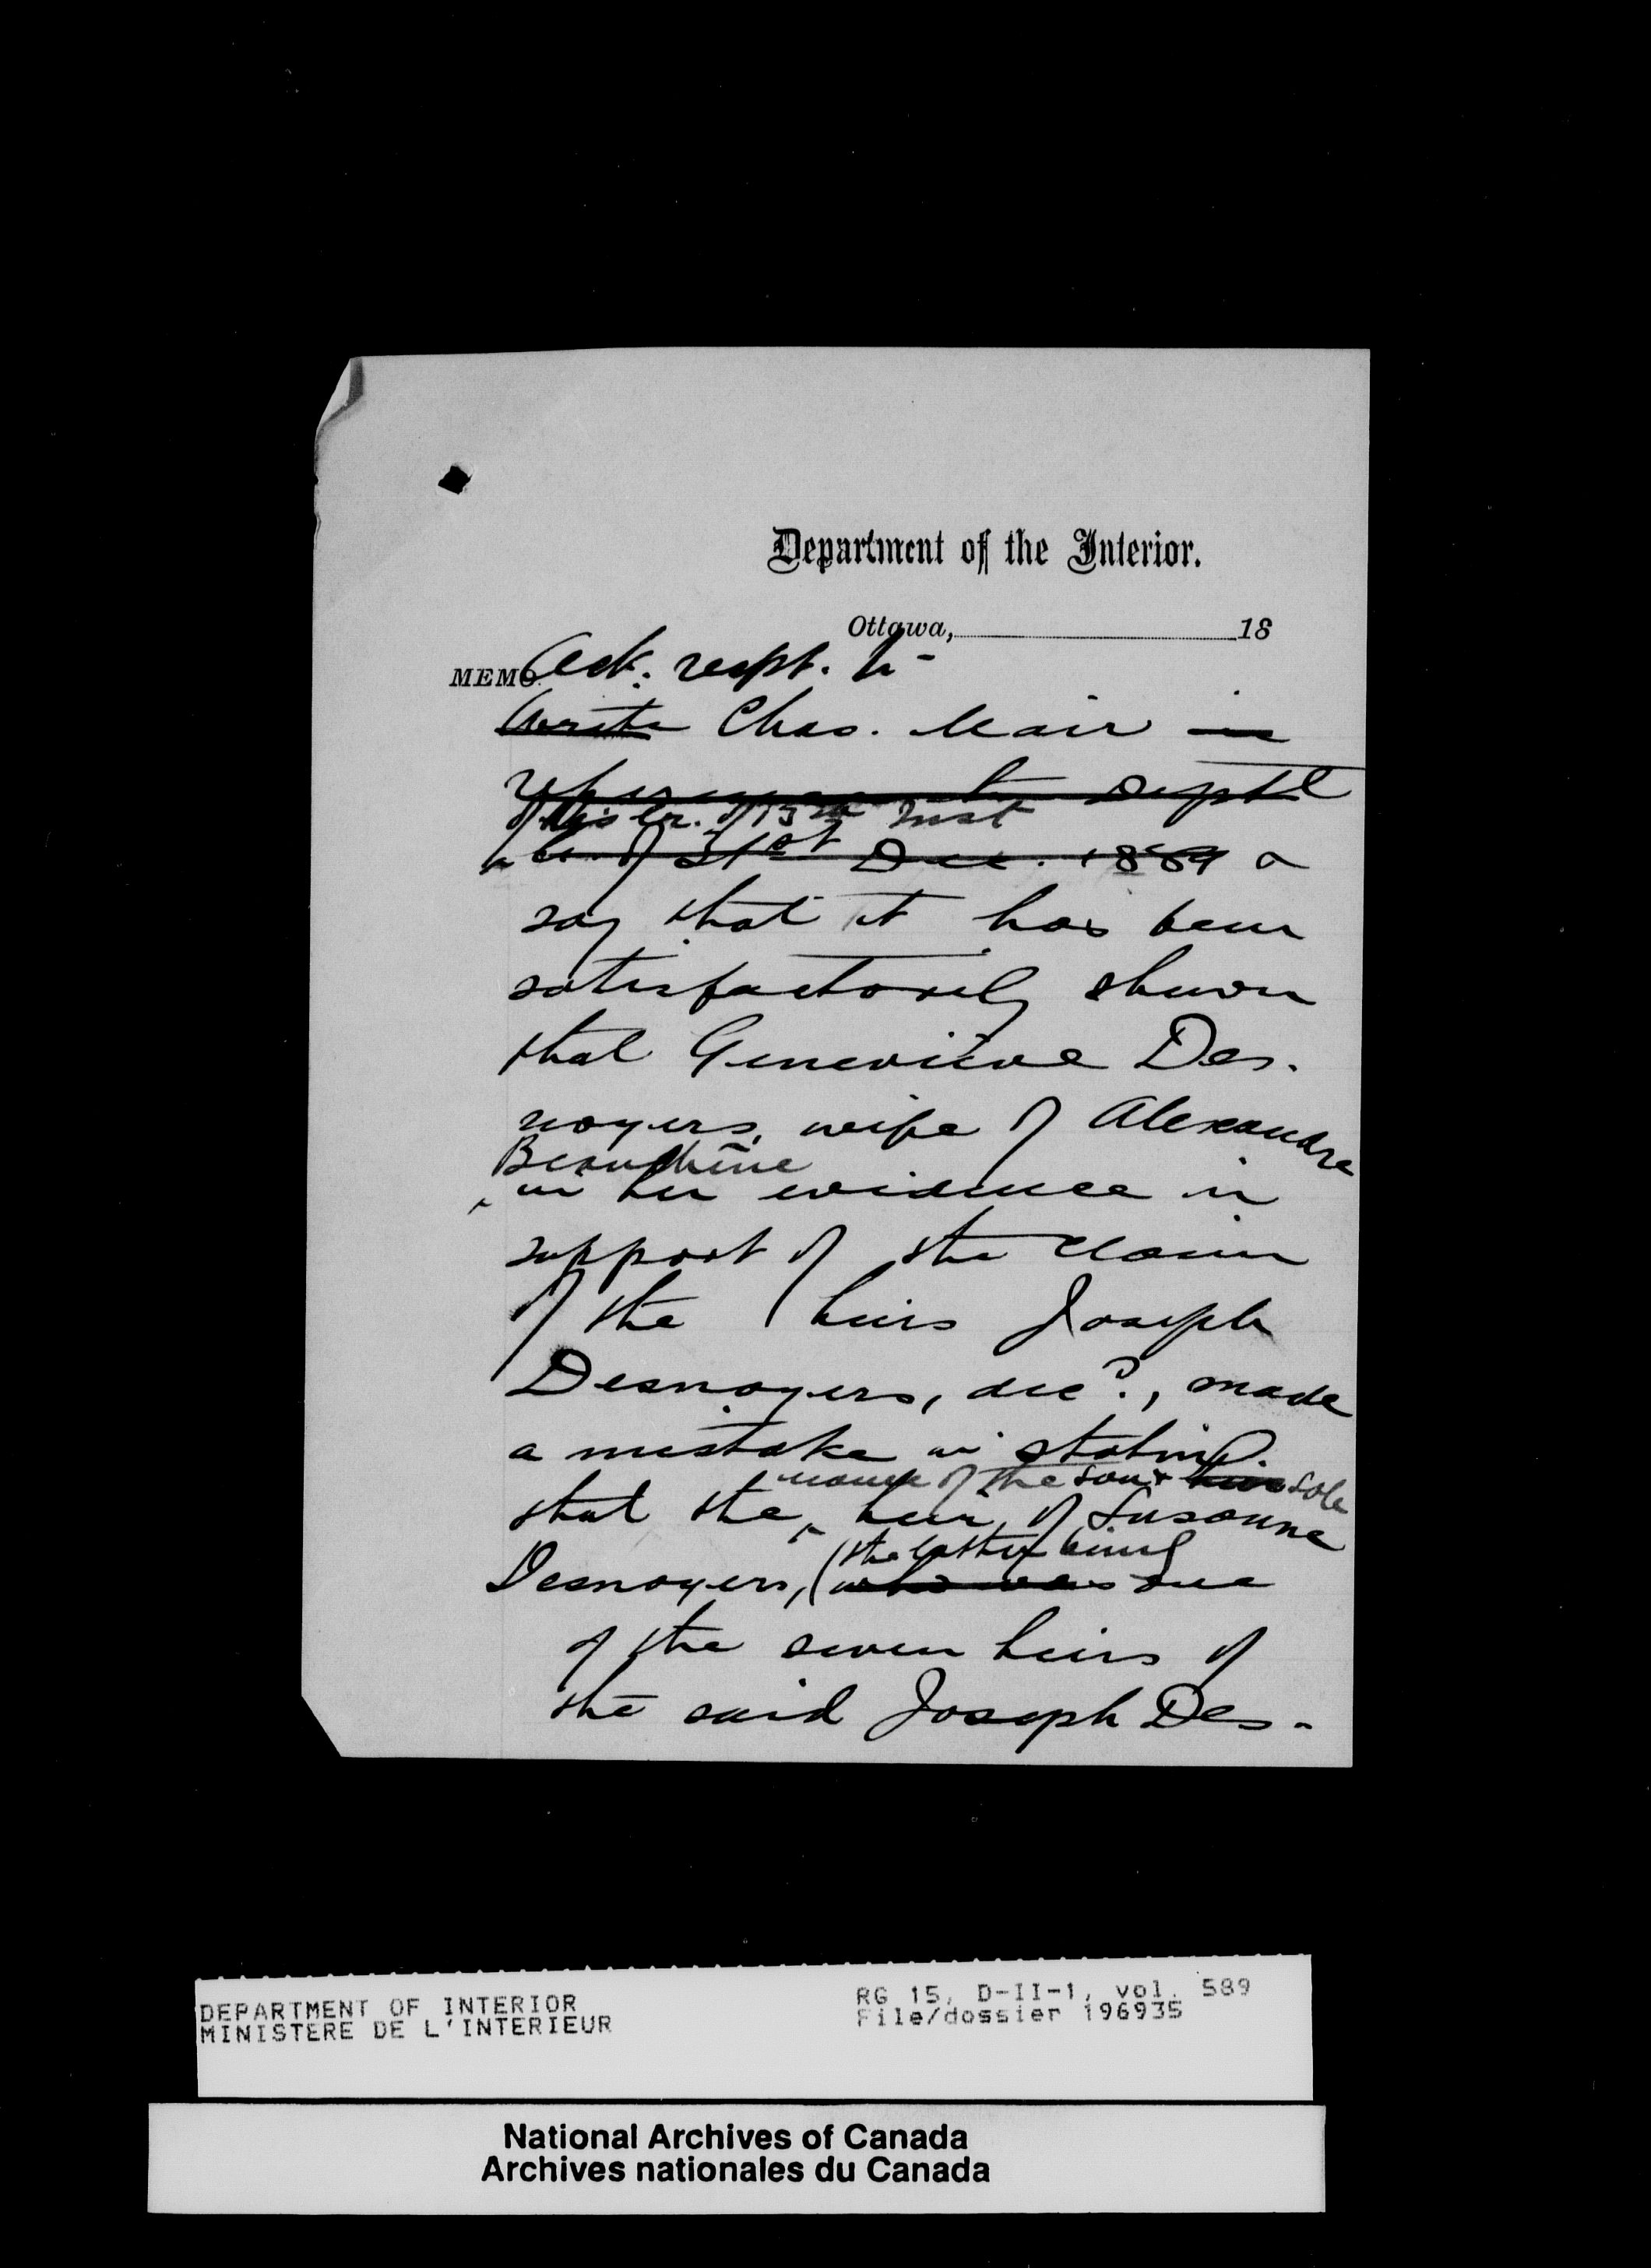 Department of the Interior.
Ottawa, 18
MEMO.
Ack. recpt. to
Write Chas. Mair in
reference to Deptl
of his lr. of 13th Inst
lr. of 21st Dec. 1889 &
say that it has been
satisfactorily shewn
that Genevieve Des-
noyers, wife of Alexandre
Beauchêne
in her evidence in
support of the claim
of the heirs Joseph
Desnoyers, decd., made
a mistake in stating
name of the son & heir sole
that the heir of Susanne
(the latter being
Desnoyers, (who was one
of the seven heirs of
the said Joseph Des-
DEPARTMENT OF INTERIOR
MINISTERE DE L'INTERIEUR
RG 15, D-II-1, vol. 589
File/dossier 196935
National Archives of Canada
Archives nationales du Canada